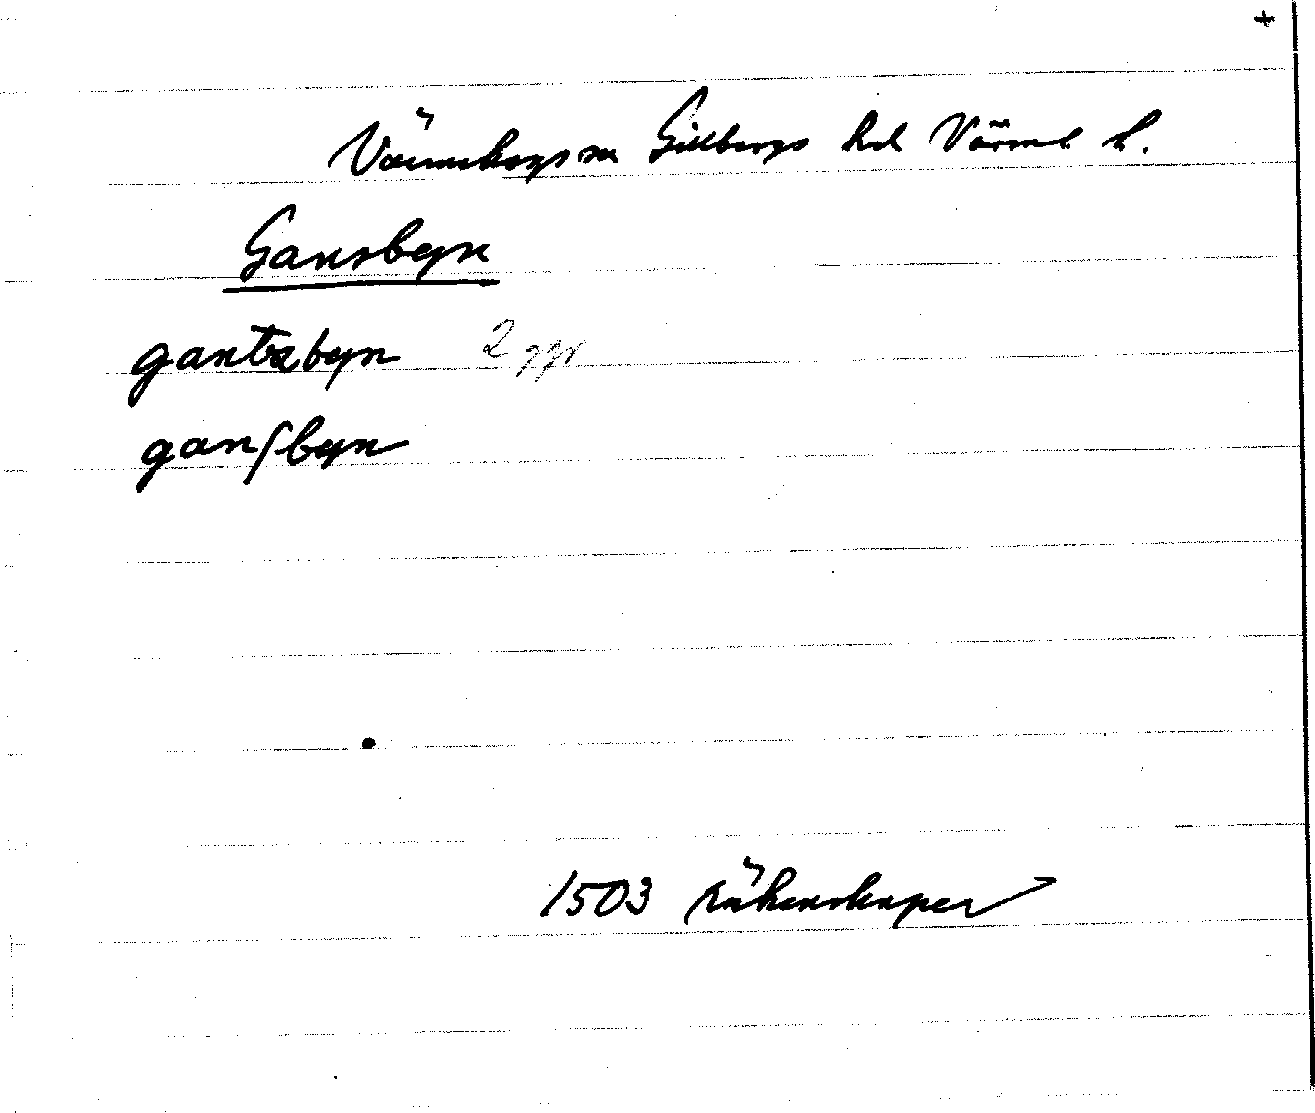 +
Värmskogs sn Gillbergs hd Värml l.
Gansbyn
gantzbyn 2 ggr
ganſbyn
1503 räkenskaper